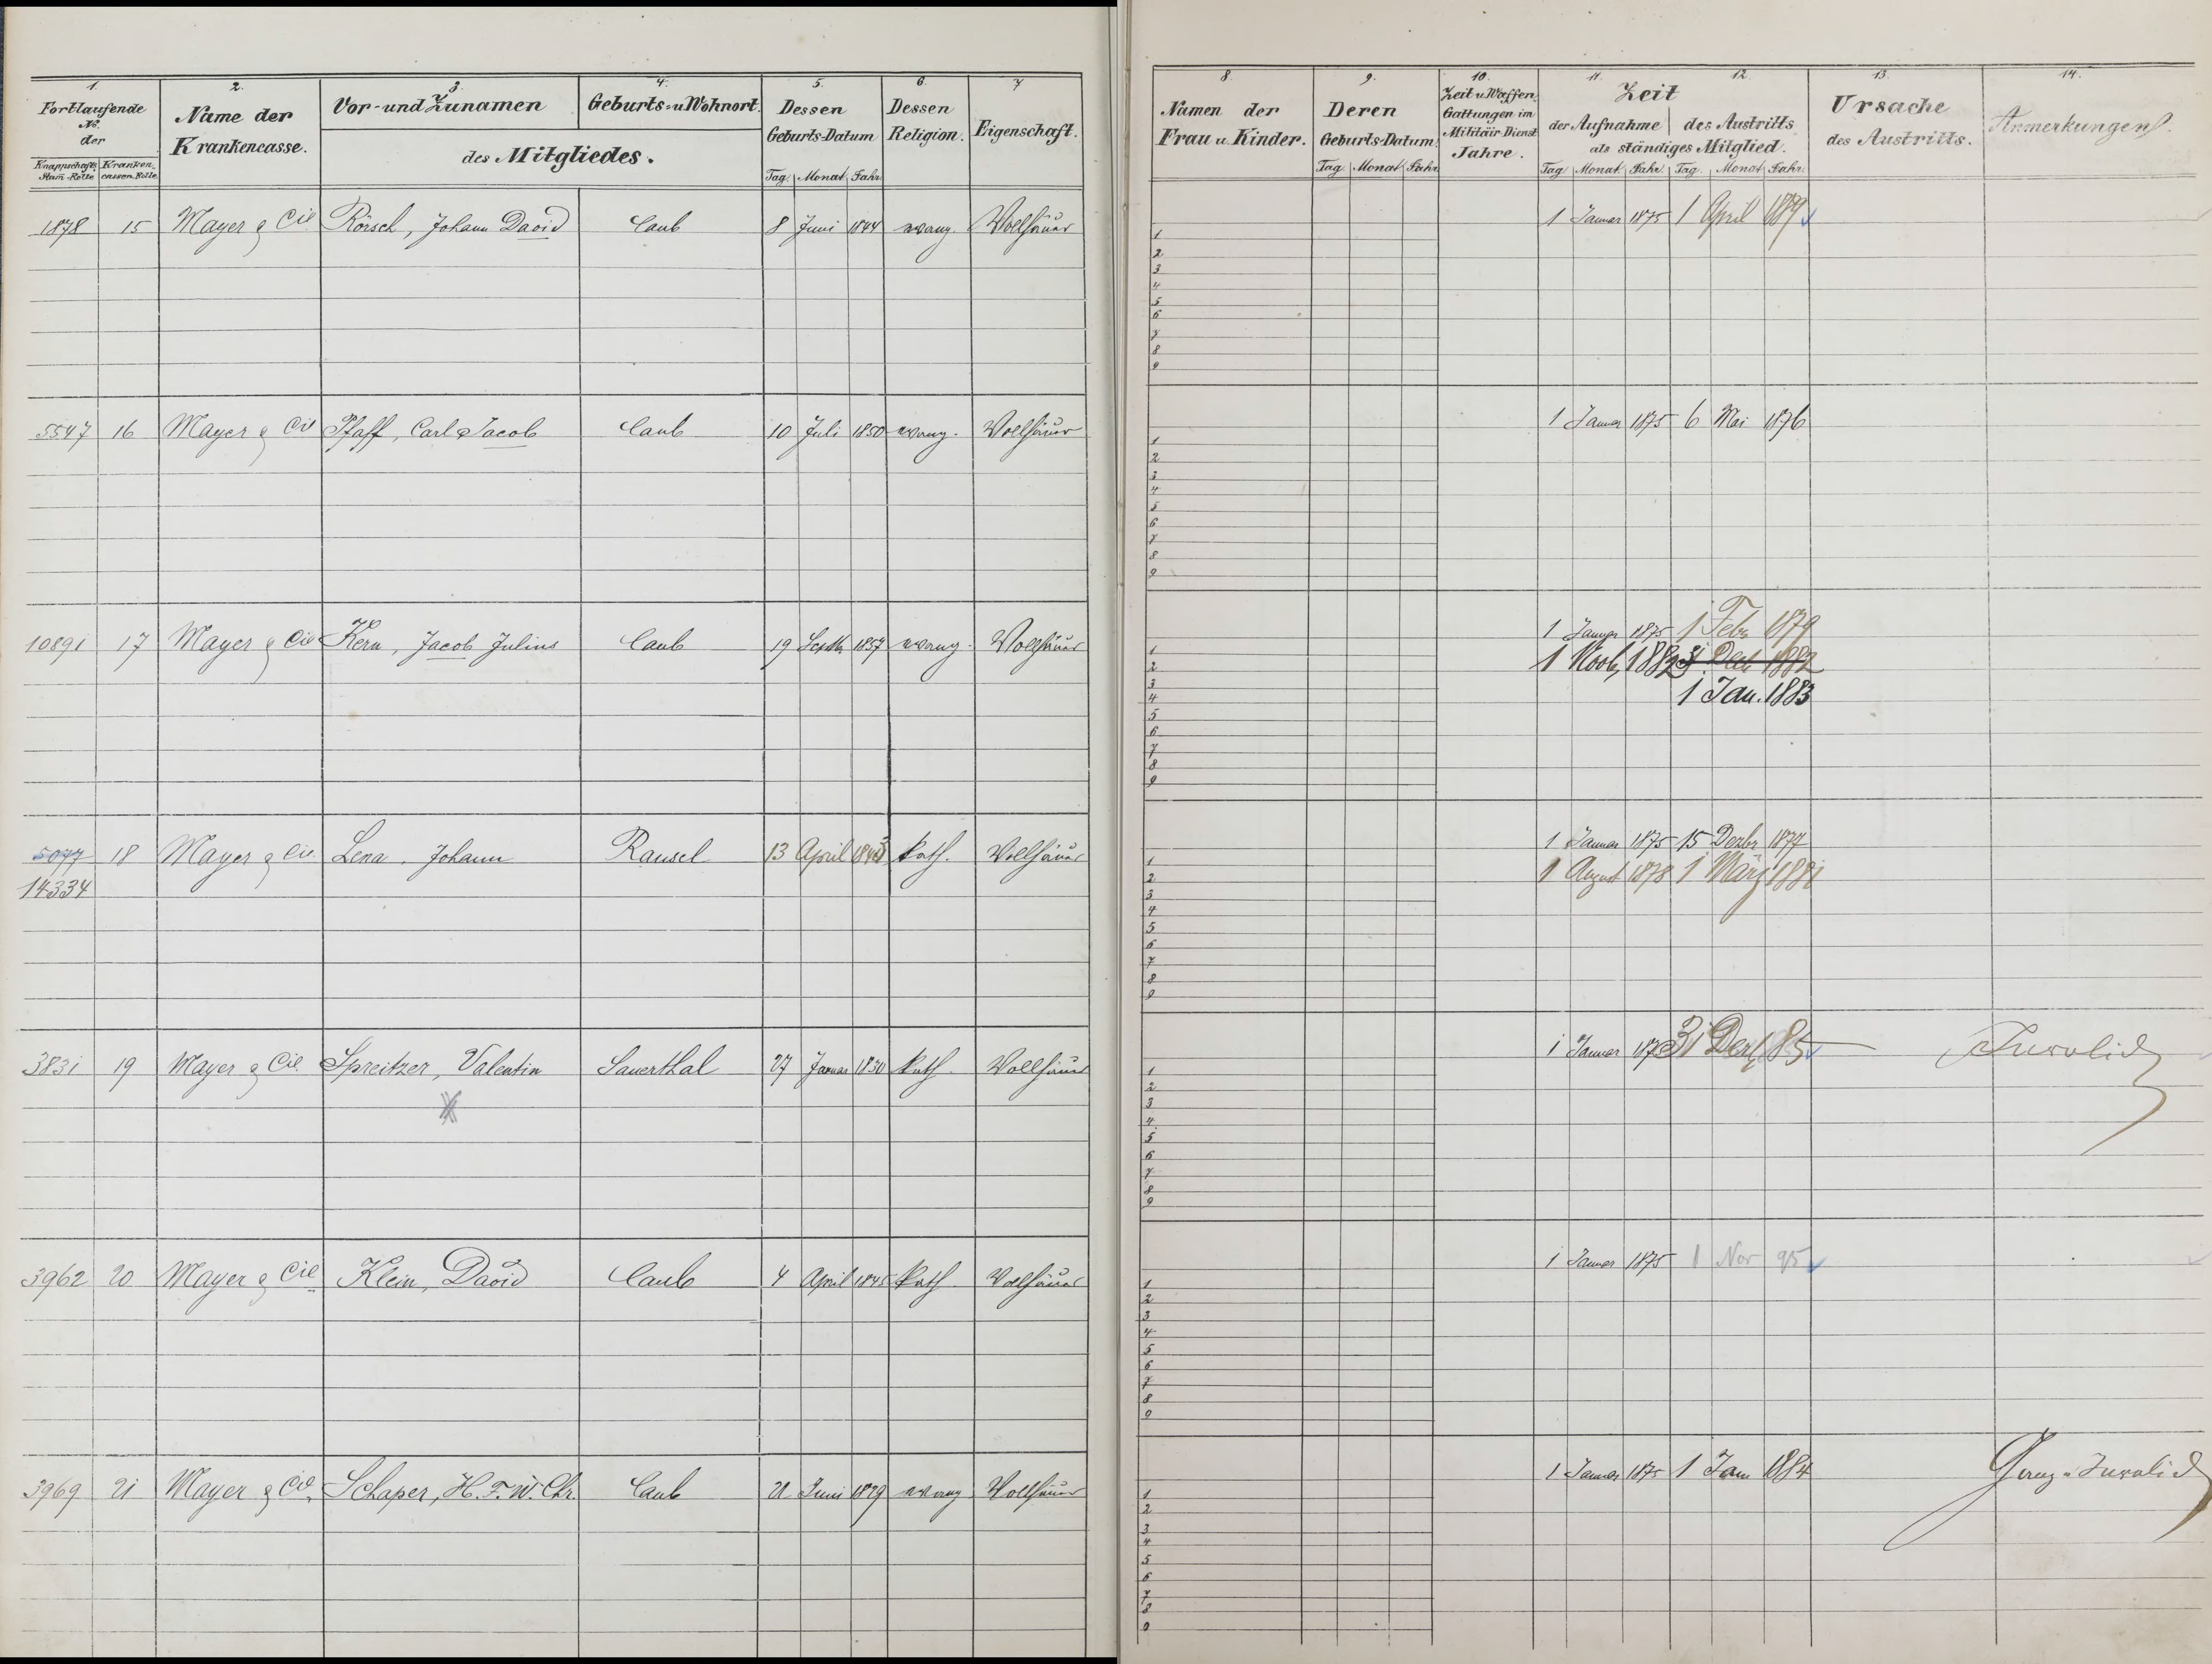 1. 2. 3. 4. 5. 6. 7
Fortlaufende No. der
Knappschafts Stam-Rolle
Kranken. cassen-Rolle
Name der Krankencasse.
Vor- und Zunamen
Geburts- u Wohnort.
des Mitgliedes.
Dessen Geburts-Datum
Tag. Monat Jahr
Dessen Religion.
Eigenschaft.
1878 15 Mayer & Cie Rörsch, Johann David Caub 8 Juni 1844 evang. Vollhäuer
5547 16 Mayer & Cie Pfaff, Carl Jacob Caub 10 Juli 1850 evang. Vollhäuer
10891 17 Mayer & Cie Kern, Jacob Julius Caub 19 Septb 1857 evang. Vollhäuer
5077 18 Mayer & Cie. Lena, Johann Ransel 13 April kath. Vollhäuer
14334
3831 19 Mayer & Cie. Spreitzer, Valentin Sauerthal 27 Januar 1830 kath. Vollhäuer
3962 20 Mayer & Cie Klein, David Caub 4 April 1845 kath. Vollhäuer
3969 21 Mayer & Cie. Schaper, H. F. W. Chr. Caub 21 Juni 1829 evang Vollhäuer
8. 9. 10. 11. 12. 13. 14.
Namen der Frau u. Kinder.
Deren Geburts-Datum.
Tag. Monat Jahr
Zeit u. Waffen Gattungen im Militair-Dienst Jahre.
Zeit
der Aufnahme des Austritts
als ständiges Mitglied.
Tag Monat. Jahr. Tag. Monat Jahr.
Ursache des Austritts.
Anmerkungen.
1 Januar 1875 1 April 1879
1
2
3
4
5
6
7
8
9
1 Januar 1875 6 Mai 1876
1
2
3
4
5
6
7
8
9
1 Januar 1875 1 Febr 1879
1 Novb, 1882 31 Decb 1882
1 Jan. 1883
1
2
3
4
5
6
7
8
9
1 Januar 1875 15 Dezbr 1877
1 August 1878 1 März 1881
1
2
3
4
5
6
7
8
9
1 Januar 31 Dez 85 Invalid
1
2
3
4
5
6
7
8
9
1 Januar 1875 1 Nov 95
1
2
3
4
5
6
7
8
9
1 Januar 1875 1 Jan 1884 Ganz-Invalid
1
2
3
4
5
6
7
8
9